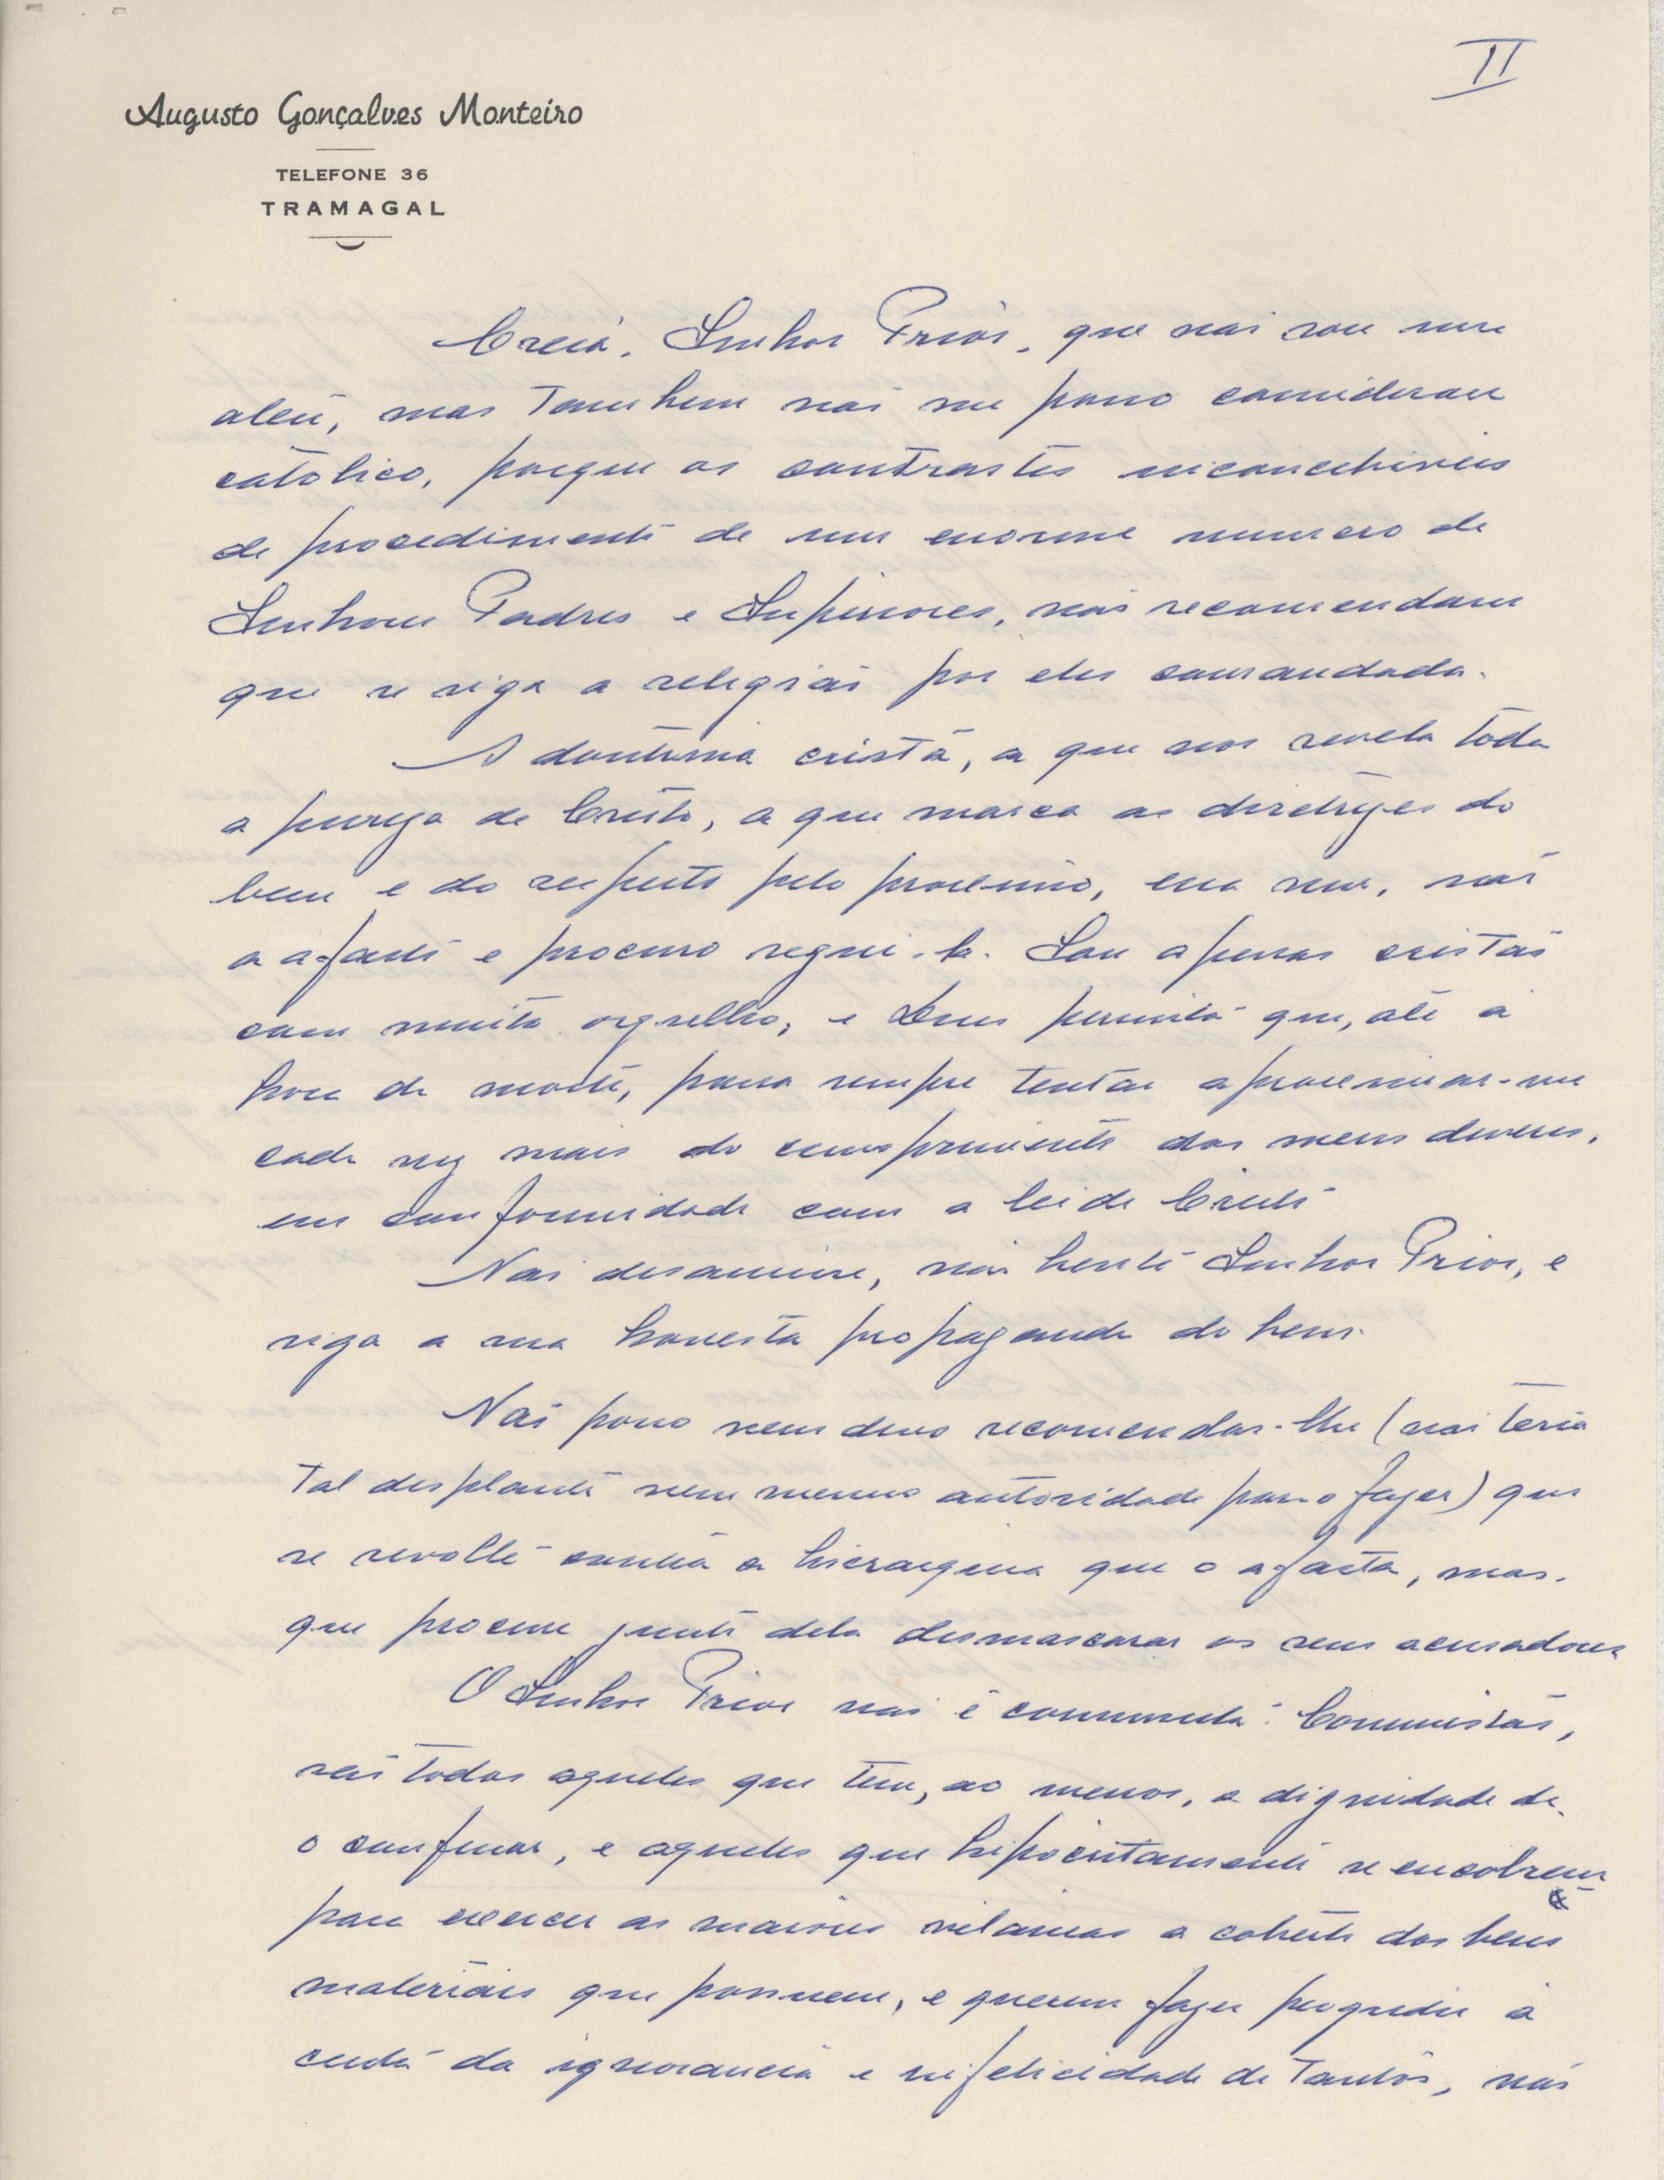 II
Augusto Gonçalves Monteiro
TELEFONE 36
TRAMAGAL
Creia, Senhor Prior, que não sou um
ateu, mas tambem não me posso considerar
católico, porque os contrastes inconcebiveis
de procedimento de um enorme numero de
Senhores Padres e Superiores, não recomendam
que se siga a religião por eles comandada.
A doutrina cristã, a que nos revela toda
a pureza de Cristo, a que marca as diretrizes do
bem e do respeito pelo proximo, essa sim, não
a afasto e procuro segui-la. Sou apenas cristão
com muito orgulho, e Deus permita que, até à
hora da morte, possa sempre tentar aproximar-me
cada vez mais do cumprimento dos meus deveres,
em conformidade com a lei de Cristo
Não desanime, não hesite Senhor Prior, e
siga a sua honesta propaganda do bem.
Não posso nem devo recomendar-lhe (não teria
tal desplante nem menos autoridade para o fazer) que
se revolte contra a hierarquia que o afasta, mas
que procure junto dela desmascarar os seus acusadores
O Senhor Prior não é comunista. Comunistas,
são todos aqueles que tem, ao menos, a dignidade de
o confessar, e aqueles que hipocritamente se encobrem
para exercer as maiores vilanias a coberto dos bens
materiais que possuem, e querem fazer progredir à
custa da ignorancia e infelicidade de tantos, não